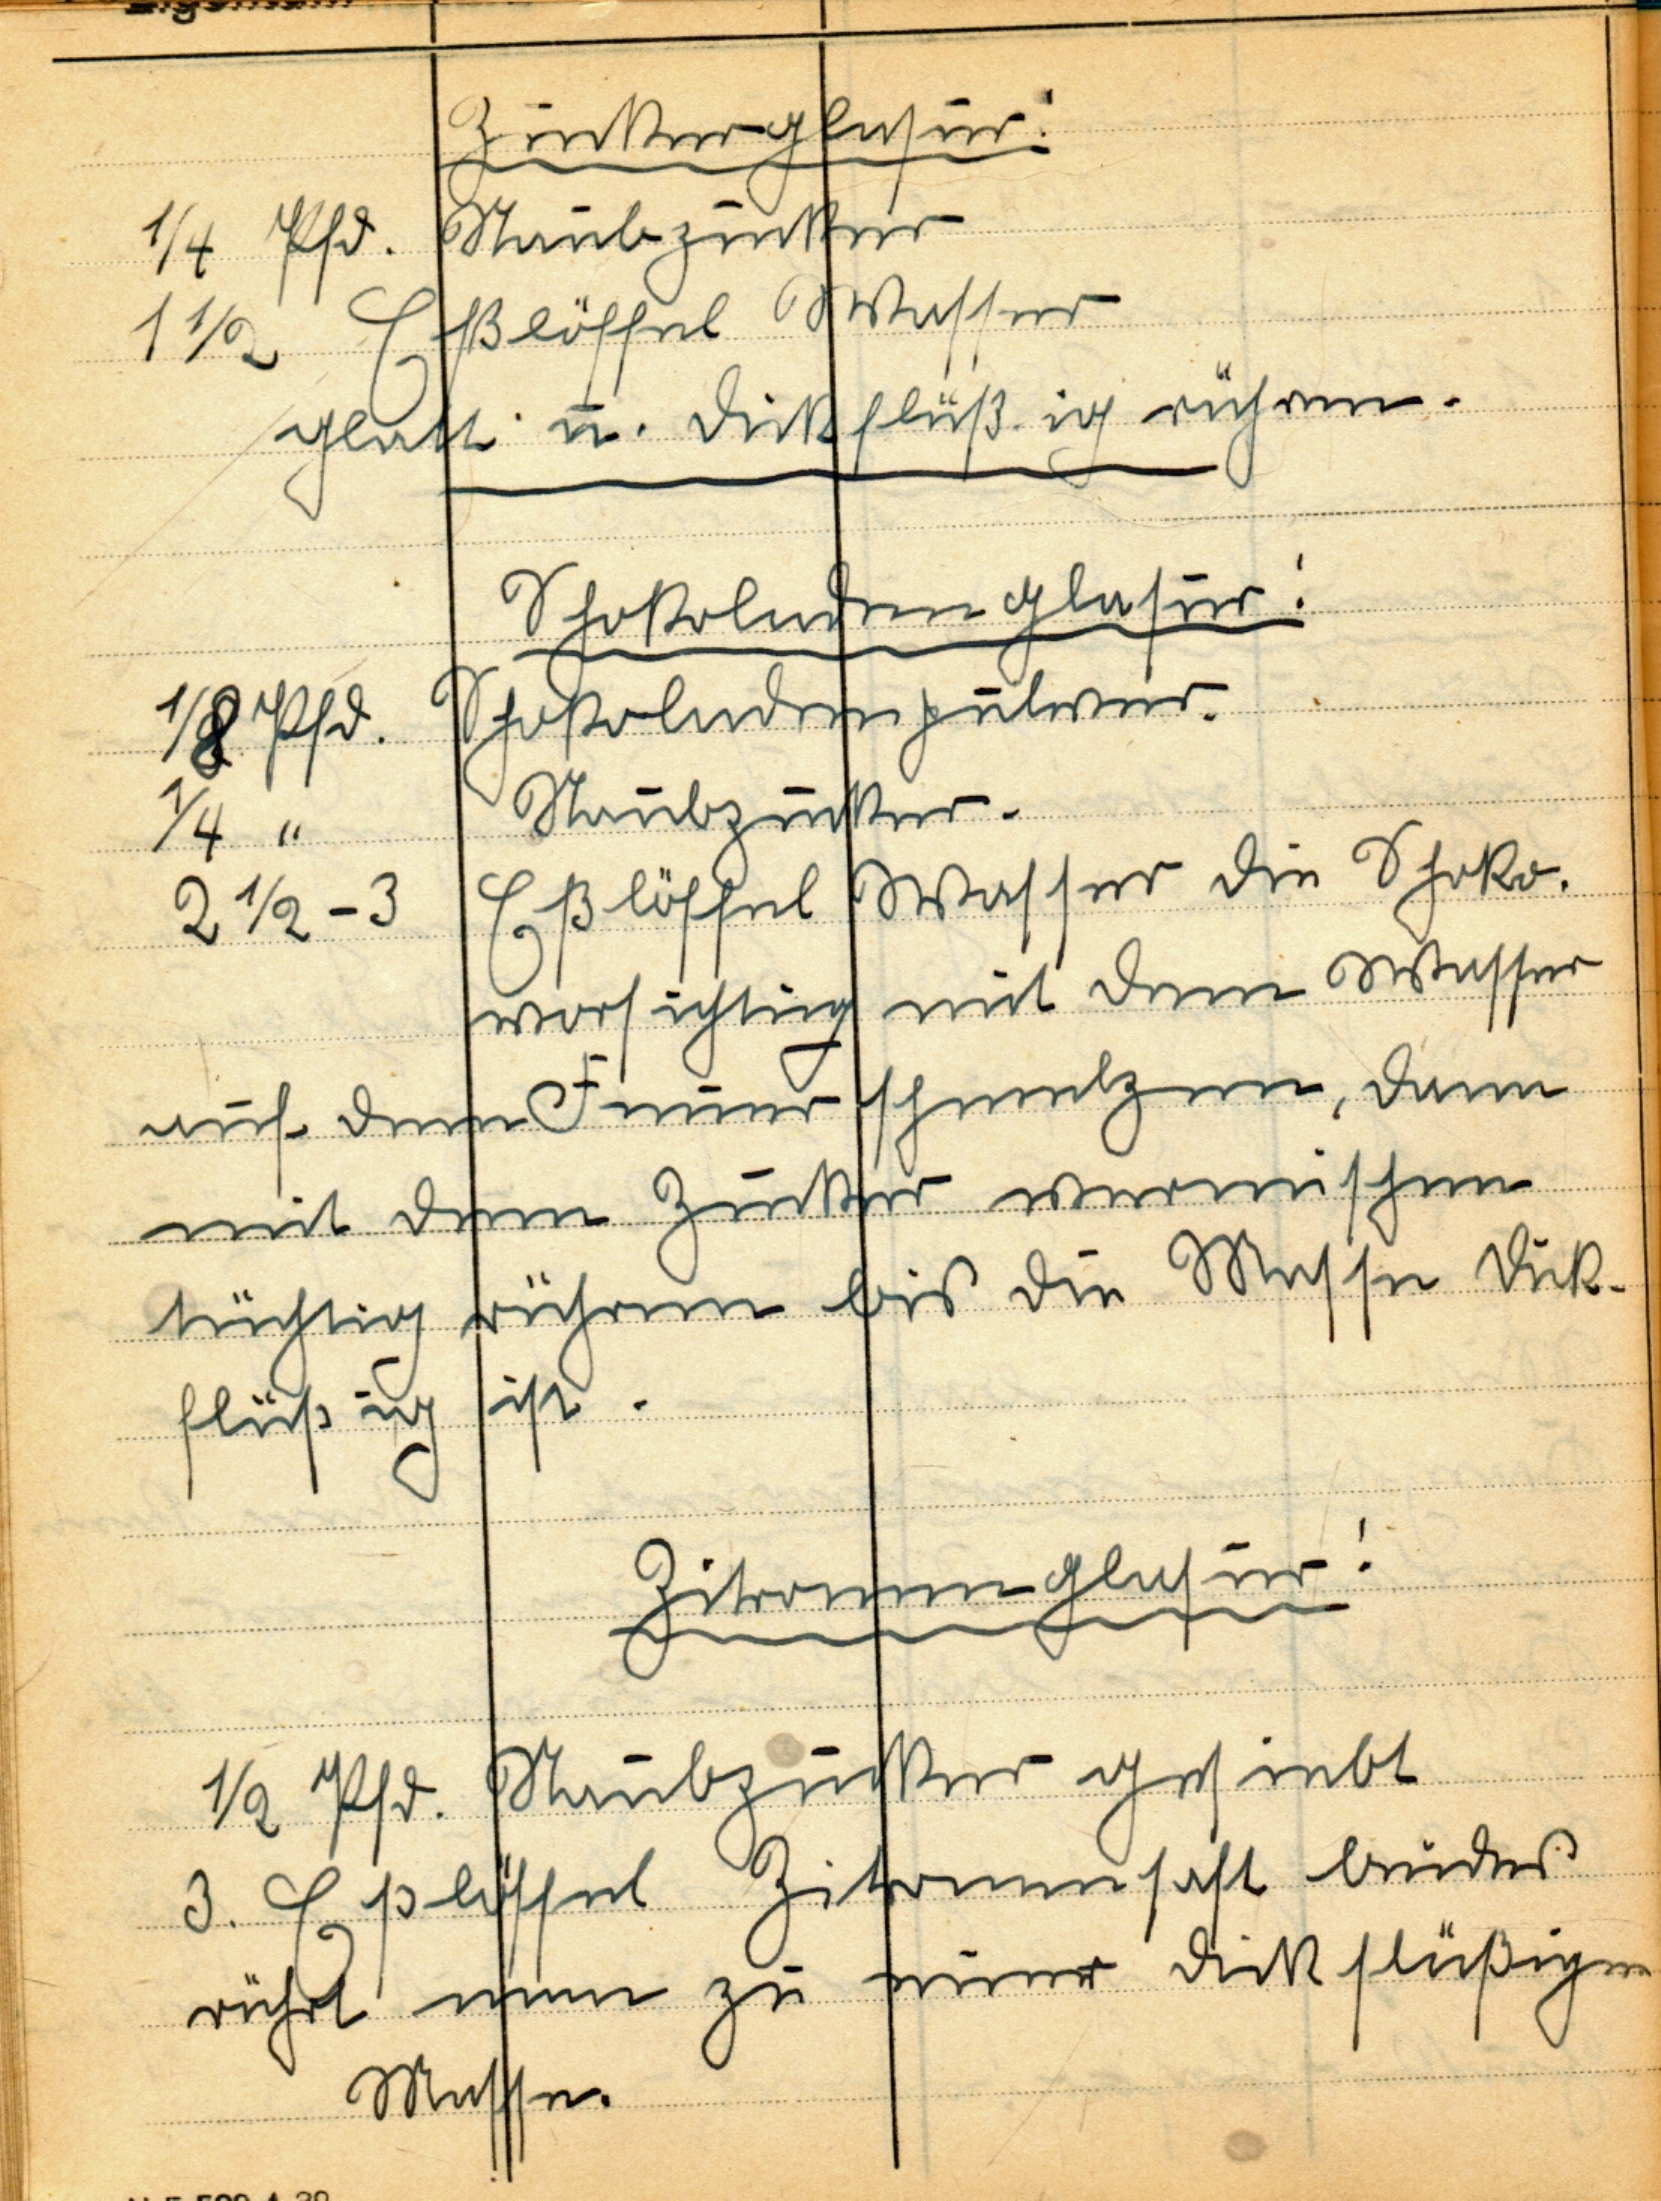 Zuckerglasur:
1/4 Pfd. Staubzucker
1 1/2 Eßlöffel Wasser
glatt u. dickflüßig rühren.
Schokoladenglasur:
1/8 Pfd. Schokoladenpulver.
1/4 " Staubzucker.
2 1/2 - 3 Eßlöffel Wasser die Schoko.
vorsichtig mit dem Wasser
auf dem Feuer schmelzen, dann
mit dem Zucker vermischen
tüchtig rühren bis die Masse dick-
flüßig ist.
Zitronenglasur:
1/2 Pfd. Staubzucker gesiebt
3. Eßlöffel Zitronensaft beides
rührt man zu einer dickflüßigen
Masse.